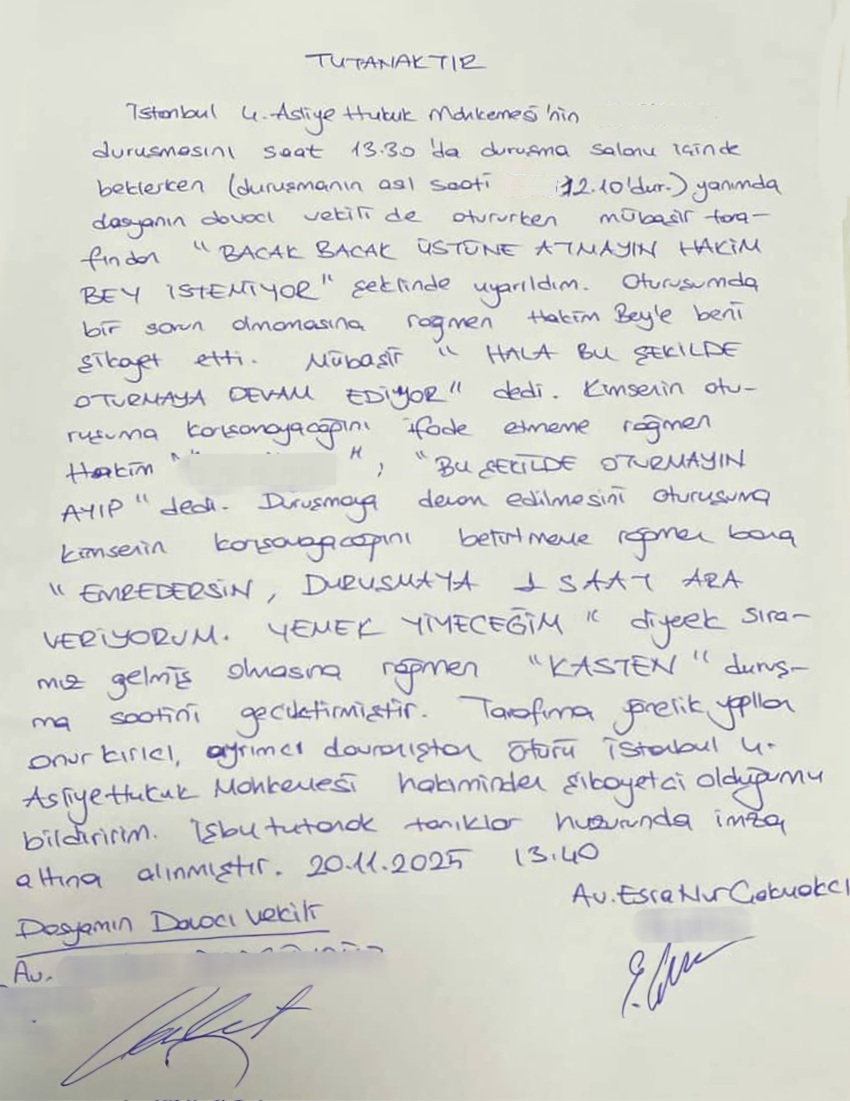 TUTANAKTIR
İstanbul 4. Asliye Hukuk Mahkemesi'nin
duruşmasını saat 13.30'da duruşma salonu içinde
beklerken (duruşmanın asıl saati 12.10'dur.) yanımda
dosyanın davacı vekili de otururken mübaşir tara-
fından "BACAK BACAK ÜSTÜNE ATMAYIN HAKİM
BEY İSTEMİYOR" şeklinde uyarıldım. Oturuşumda
bir sorun olmamasına rağmen Hakim Bey'e beni
şikayet etti. Mübaşir "HALA BU ŞEKİLDE
OTURMAYA DEVAM EDİYOR" dedi. Kimsenin otu-
ruşuma karışamayacağını ifade etmeme rağmen
Hakim " ", "BU ŞEKİLDE OTURMAYIN
AYIP" dedi. Duruşmaya devam edilmesini oturuşuma
kimsenin karışamayacağını belirtmeme rağmen bana
"EMREDERSİN, DURUŞMAYA 1 SAAT ARA
VERİYORUM. YEMEK YİYECEĞİM" diyerek sıra-
mız gelmiş olmasına rağmen "KASTEN" duruş-
ma saatini geciktirmiştir. Tarafıma yönelik yapılan
onur kırıcı, ayrımcı davranıştan ötürü İstanbul 4.
Asliye Hukuk Mahkemesi hakiminden şikayetçi olduğumu
bildiririm. İşbu tutanak tanıklar huzurunda imza
altına alınmıştır. 20.11.2025 13.40
Av. Esra Nur Çakmakcı
Dosyamın Davacı Vekili
Av.